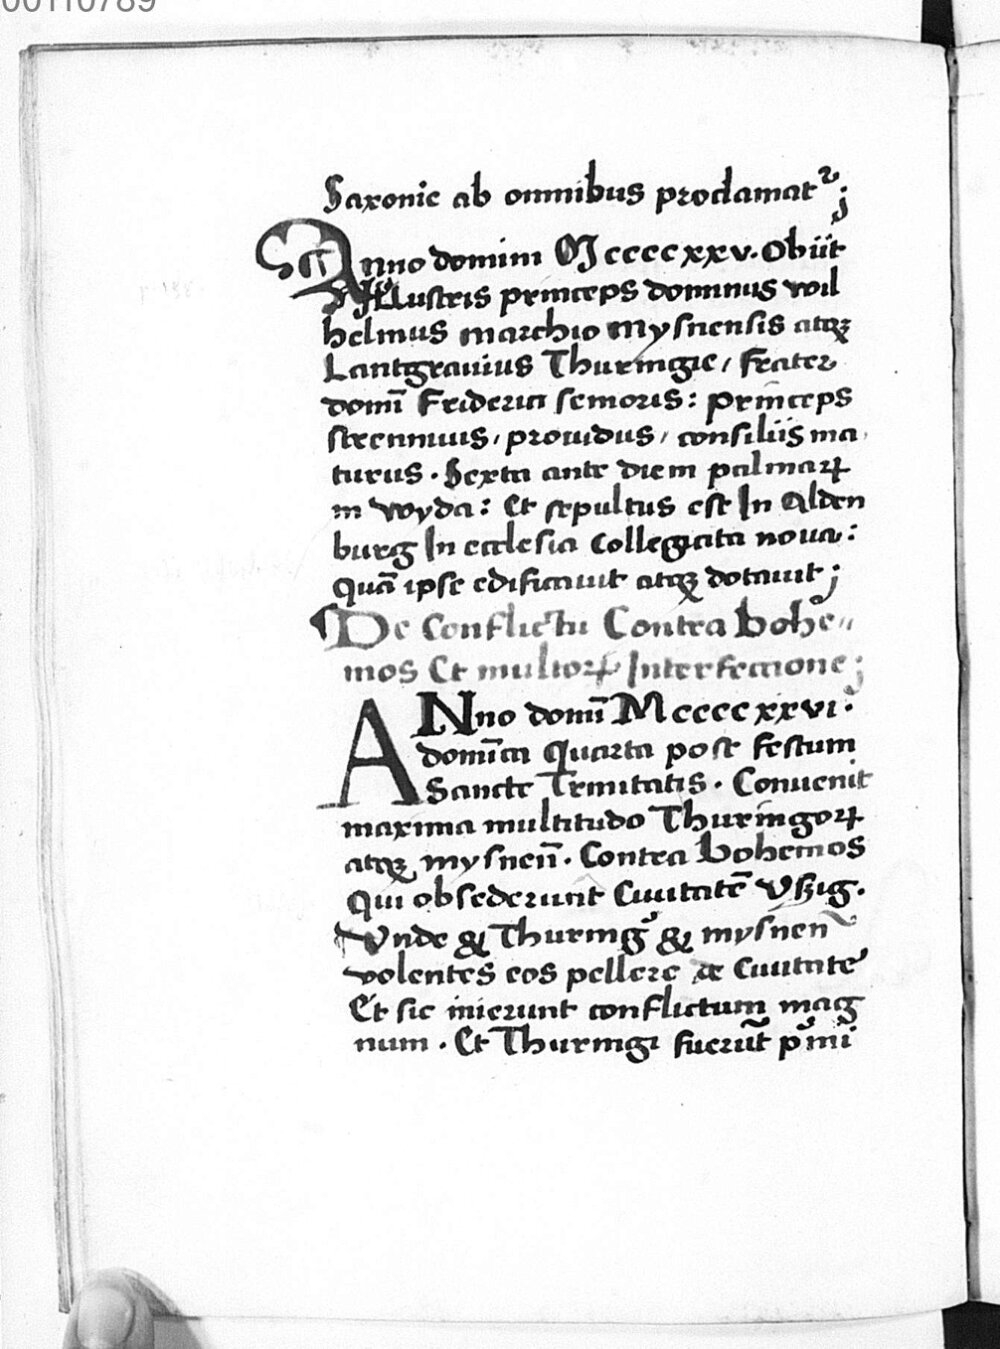 00110789
Saxonie ab omnibus proclamatꝰ;
Anno domini M ccccxxv. Obiit
Illustris princeps dominus wil
helmus marchio mysnensis atqꝫ
Lantgrauius Thuringie / frater
domī Friderici senioris: princeps
strennuus, prouidus, consiliis ma,
turus. Sexta ante diem palmaꝝ
in wyda: Et sepultus est In Alden
burg In ecclesia collegiata noua:
Quā ipse edificauit atqꝫ dotauit;
De Conflictu Contra bohe„
mos Et multoꝝ Interfectione;
ANno domī M ccccxxvi.
domīca Quarta post festum
Sancte Trinitatis. Conuenit
maxima multitudo Thuringoꝝ
atqꝫ mysneñ. Contra Bohemos
Qui obsederunt Ciuitatē Vſzig.
Vnde & Thuringꝰ & mysnen̄
volentes eos pellere a Ciuitate
Et sic inierunt conflictum mag
num. Et Thuringi fuerūt pꝰmi